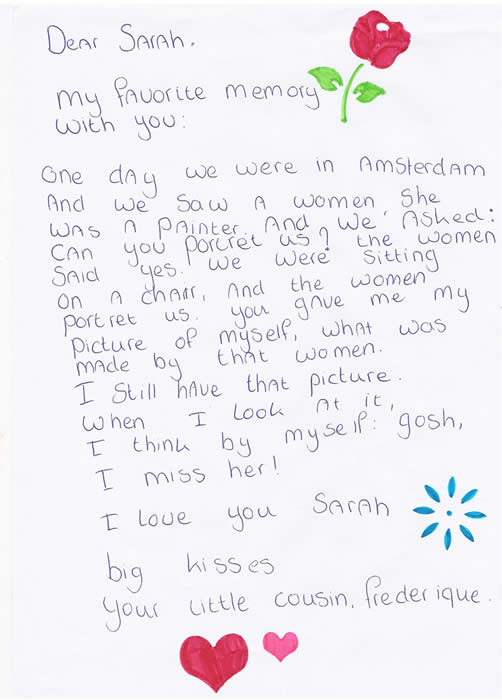 Dear Sarah.
my favorite memory
with you:
One day we were in Amsterdam
And we saw a women she
was a painter. And we asked:
can you portret us? the women
said yes. we were sitting
on a chair, And the women
portret us. you gave me my
picture of myself, what was
made by that women.
I still have that picture.
when I look at it,
I think by myself: gosh,
I miss her!
I love you Sarah
big kisses
your little cousin, frederique.